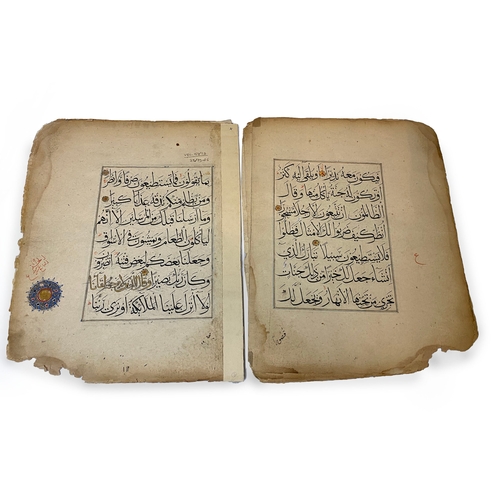 فيكون معه نذيرا او يلقى اليه كنز
او تكون له جنة ياكل منها وقال
الظالمون ان تتبعون الا رجلا مسحورا
انظر كيف ضربوا لك الامثال فضلوا
فلا يستطيعون سبيلا تبارك الذي
ان شاء جعل لك خيرا من ذلك جنات
تجري من تحتها الانهار ويجعل لك
بما تقولون فما تستطيعون صرفا ولا نصرا
ومن يظلم منكم نذقه عذابا كبيرا
وما ارسلنا قبلك من المرسلين الا انهم
لياكلون الطعام ويمشون في الاسواق
وجعلنا بعضكم لبعض فتنة اتصبرون
وكان ربك بصيرا وقال الذين لا يرجون لقاءنا
لولا انزل علينا الملائكة او نرى ربنا